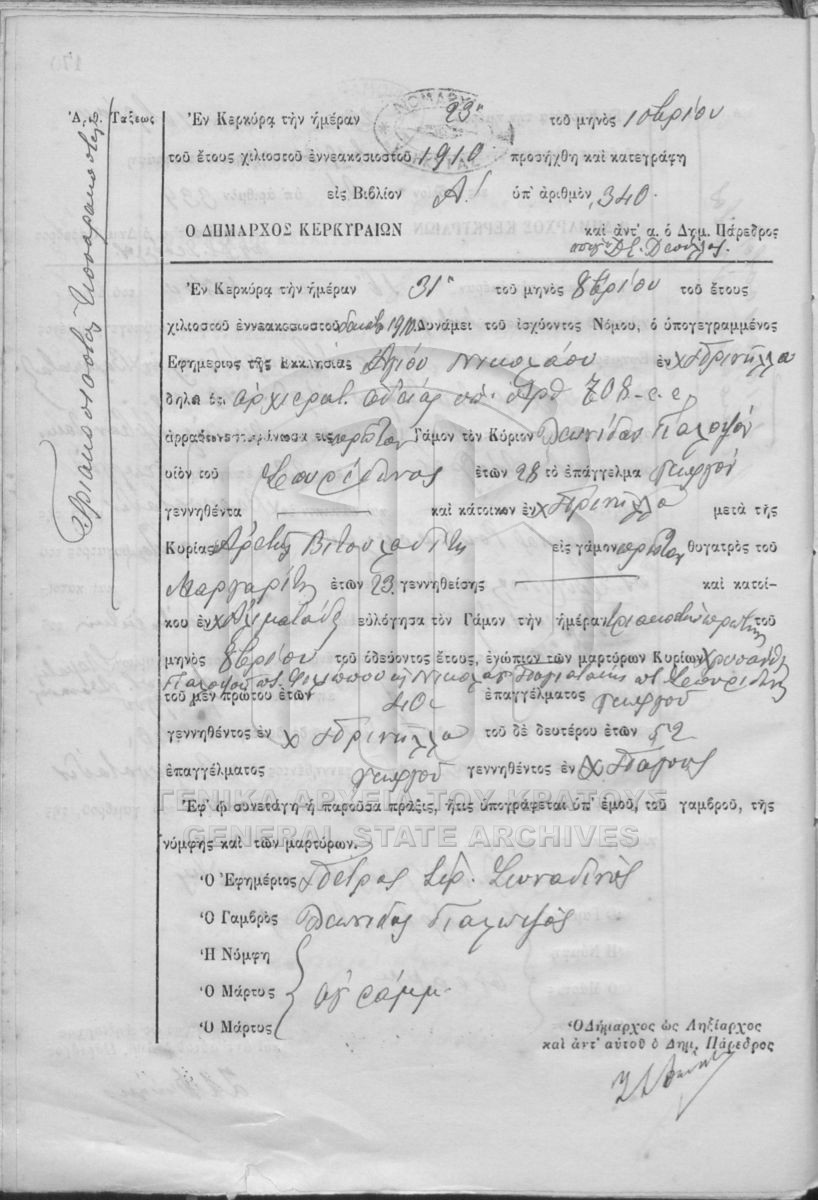 Ἀριθ. Τάξεως
Τριακοσιοστὸς Τεσσαρακοστὸς
Ἐν Κερκύρᾳ τὴν ἡμέραν 23ῃ τοῦ μηνὸς
τοῦ ἔτους χιλιοστοῦ ἐννεακοσιοστοῦ 1910 προσήχθη καὶ κατεγράφη
εἰς Βιβλίον Α΄ ὑπ' ἀριθμὸν 340.
Ὁ ΔΗΜΑΡΧΟΣ ΚΕΡΚΥΡΑΙΩΝ καὶ ἀντ' α. ὁ Δημ. Πάρεδρος
Ἐν Κερκύρᾳ τὴν ἡμέραν 31ῃ τοῦ μηνὸς 8βρίου τοῦ ἔτους
χιλιοστοῦ ἐννεακοσιοστοῦ 1910. Δυνάμει τοῦ ἰσχύοντος Νόμου, ὁ ὑπογεγραμμένος
Ἐφημέριος τῆς Ἐκκλησίας Ἁγίου Νικολάου ἐν χ Πρινήλλα
δηλῶ ὅτι ἀρχιερατ. ἀδείας ὑπ. ἀρθ 708
Γάμον τὸν Κύριον Λεωνίδαν Γιαλοψὸν
υἱὸν τοῦ Σπυρίδωνος ἐτῶν 28 τὸ ἐπάγγελμα γεωργοῦ
γεννηθέντα καὶ κάτοικον ἐν χ Πρινήλλα μετὰ τῆς
Κυρίας Ἀρετῆς εἰς γάμον πρῶτον θυγατρὸς τοῦ
Μαργαρίτη ἐτῶν 23 γεννηθείσης καὶ κατοί-
κου ἐν χ Ἀλιματάδες εὐλόγησα τὸν Γάμον τὴν ἡμέραν τριακοστὴν πρώτην τοῦ
μηνὸς 8βρίου τοῦ ὁδεύοντος ἔτους, ἐνώπιον τῶν μαρτύρων Κυρίων Χρυσάνθη
Φιλίππου κ Νικολάου Σπυρίδωνος
τοῦ μὲν πρώτου ἐτῶν 40 ἐπαγγέλματος γεωργοῦ
γεννηθέντος ἐν χ Πρινήλλα τοῦ δὲ δευτέρου ἐτῶν 52
ἐπαγγέλματος γεωργοῦ γεννηθέντος ἐν χ Πάγους
ΓΕΝΙΚΑ ΑΡΧΕΙΑ ΤΟΥ ΚΡΑΤΟΥΣ
Ἐφ' ᾧ συνετάγη ἡ παροῦσα πρᾶξις, ἥτις ὑπογράφεται ὑπ' ἐμοῦ, τοῦ γαμβροῦ, τῆς
GENERAL STATE ARCHIVES
νύμφης καὶ τῶν μαρτύρων.
Ὁ Ἐφημέριος Πέτρος Σπ. Σιναδινὸς
Ὁ Γαμβρὸς Λεωνίδας Γιαλοψὸς
Ἡ Νύμφη
Ὁ Μάρτυς ἀγράμμ.
Ὁ Μάρτυς
Ὁ Δήμαρχος ὡς Ληξίαρχος
καὶ ἀντ' αὐτοῦ ὁ Δημ. Πάρεδρος